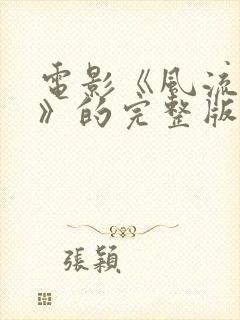 電影《風流
》的完整版
張穎